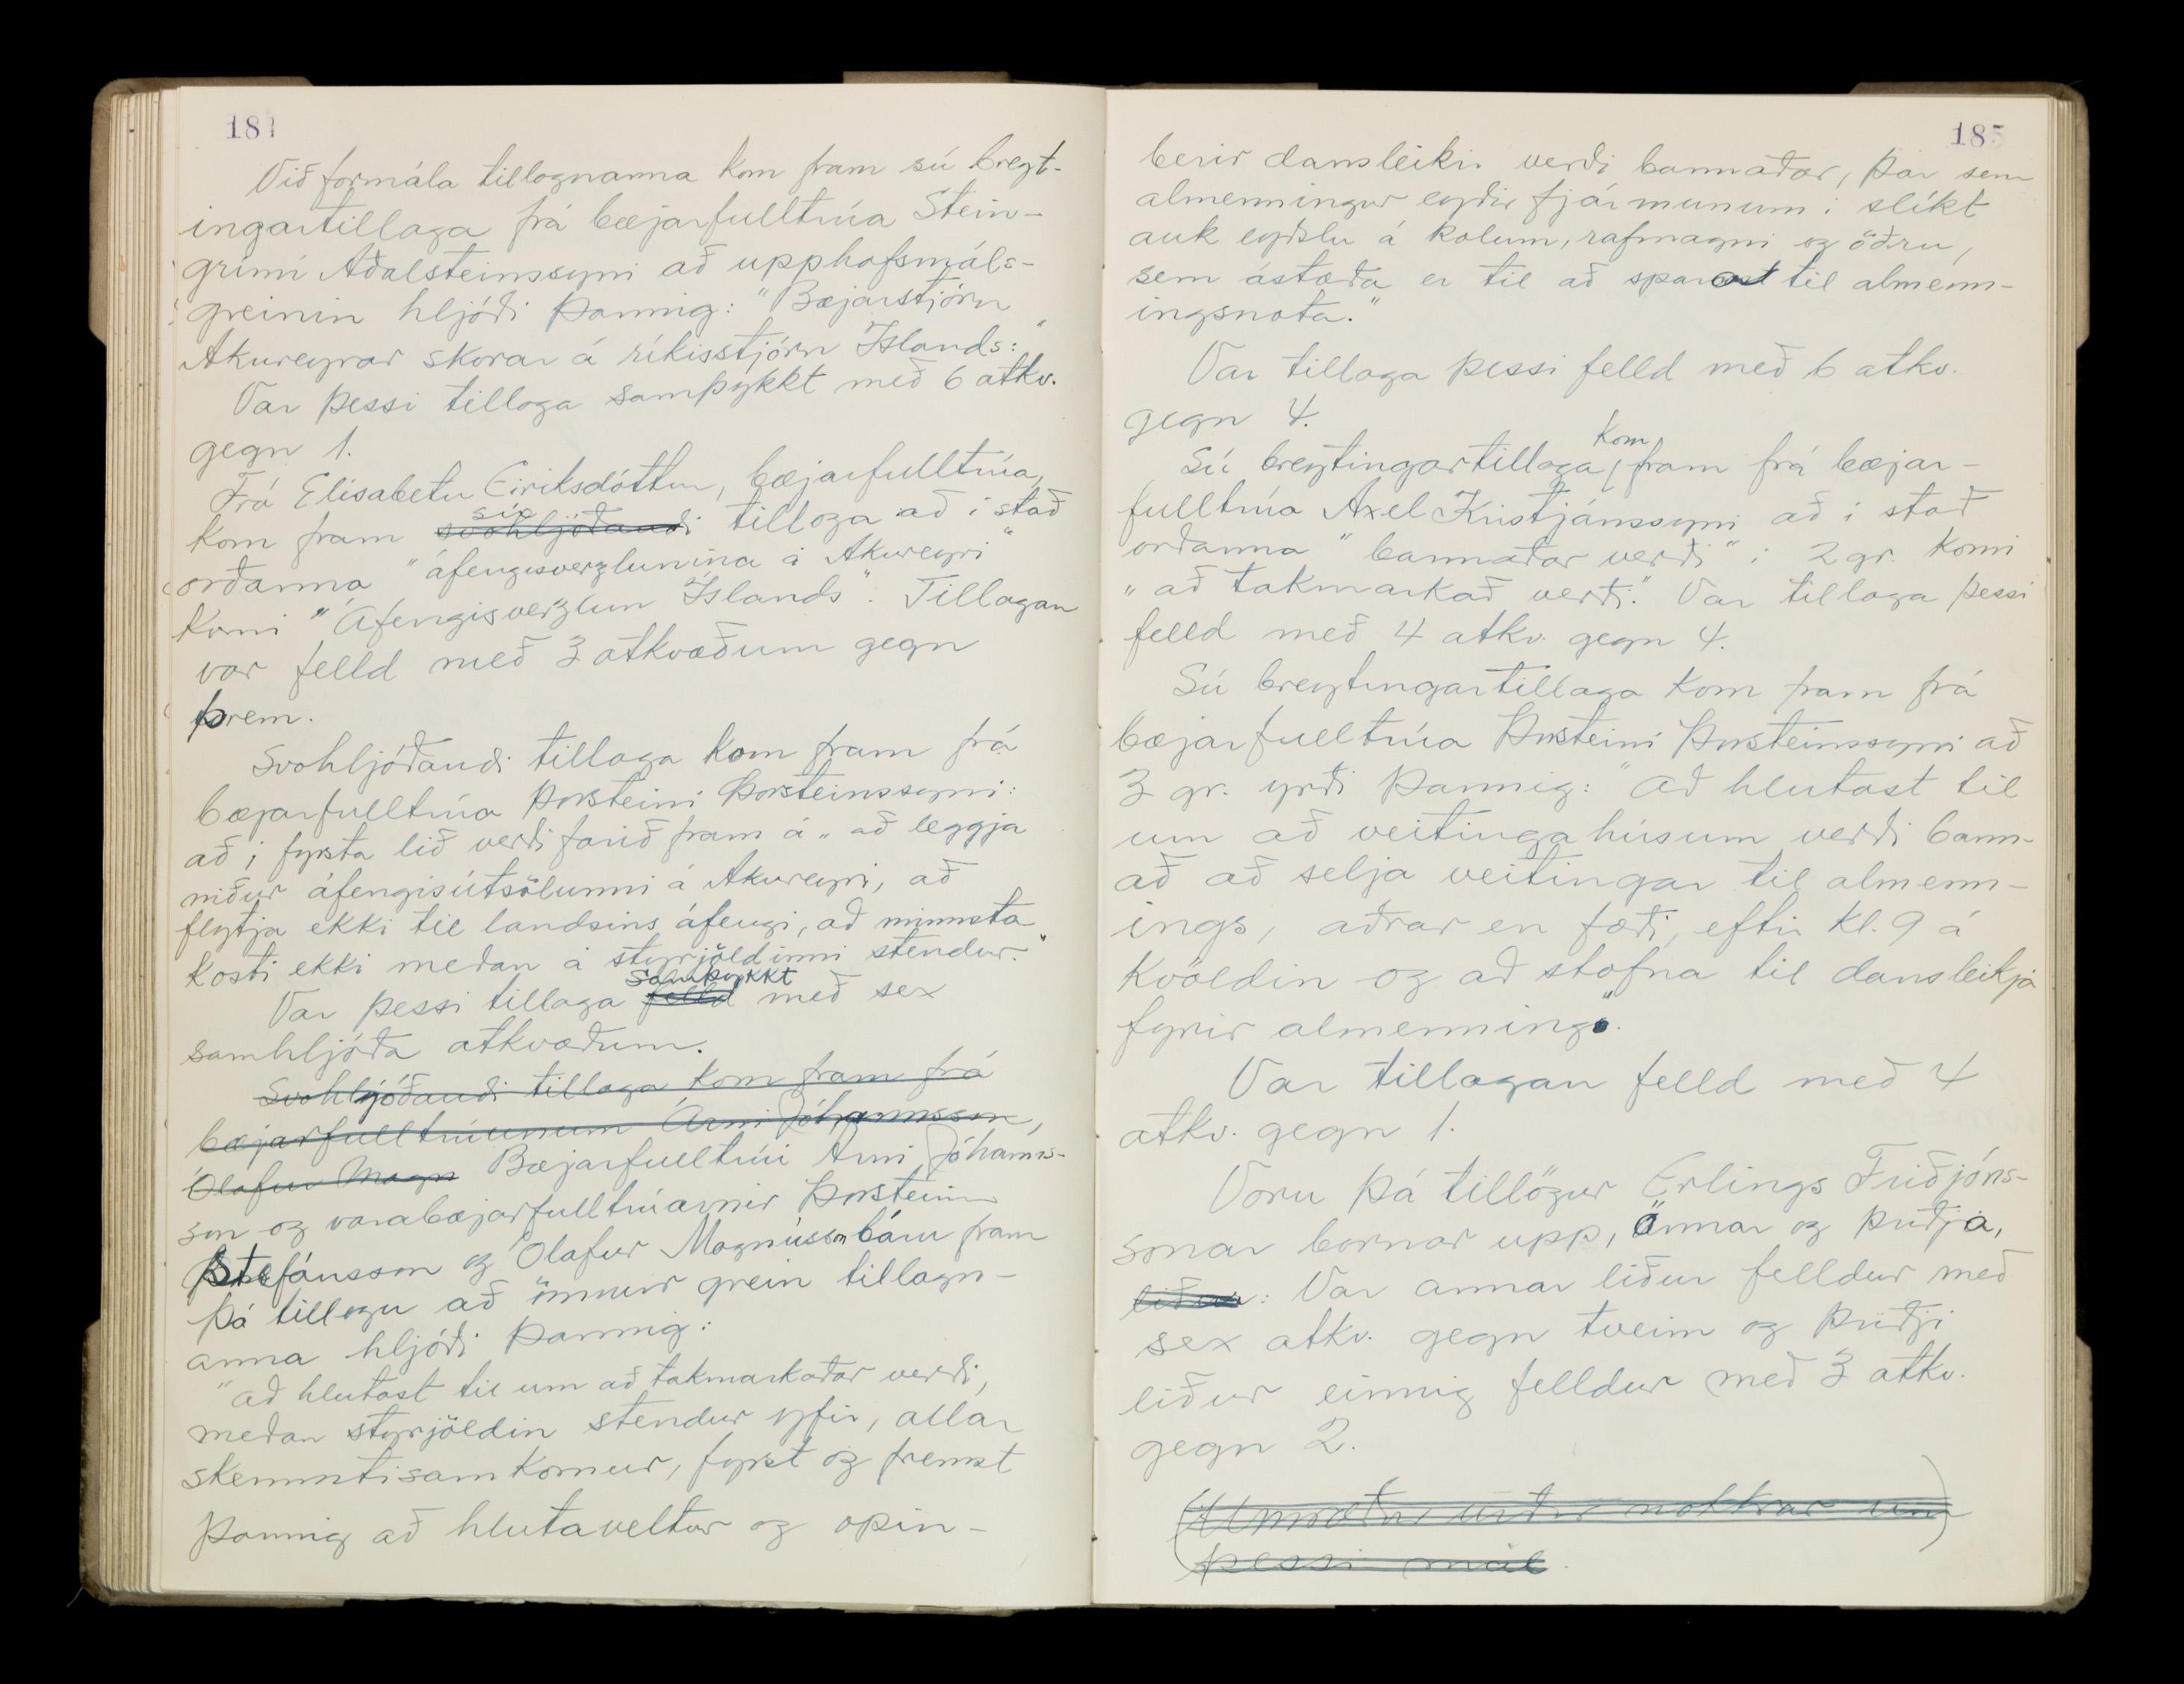 Við formála tillagnanna kom fram sú breyt-
ingartillaga frá bæjarfulltrúa Stein-
grími Aðalsteinssyni að upphafsmáls-
greinin hljóði þannig: "Bæjarstjórn
Akureyrar skorar á ríkisstjórn Íslands:"
Var þessi tillaga samþykkt með 6 atkv.
gegn 1.
Frá Elísabetu Eiríksdóttur, bæjarfulltrúa,
kom fram svohljóðandi sú tillaga að í stað
orðanna "áfengisverzlunina á Akureyri"
komi "Áfengisverzlun Íslands". Tillagan
var felld með 3 atkvæðum gegn
þrem.
Svohljóðandi tillaga kom fram frá
bæjarfulltrúa Þorsteini Þorsteinssyni:
að í fyrsta lið verði farið fram á „að leggja
niður áfengisútsölunni á Akureyri, að
flytja ekki til landsins áfengi, að minnsta
kosti ekki meðan á styrjöldinni stendur."
Var þessi tillaga felld samþykkt með sex
samhljóða atkvæðum.
Svohljóðandi tillaga kom fram frá
bæjarfulltrúunum Árni Jóhannsson,
Ólafur Magn Bæjarfulltrúi Árni Jóhanns-
son og varabæjarfulltrúarnir Þorsteinn
Stefánsson og Ólafur Magnússon báru fram
þá tillögu að önnur grein tillagn-
anna hljóði þannig:
"að hlutast til um að takmarkaðar verði,
meðan styrjöldin stendur yfir, allar
skemmtisamkomur, fyrst og fremst
þannig að hlutaveltur og opin-
185
berir dansleikir verði bannaðar, þar sem
almenningur eyðir fjármunum í slíkt
auk eyðslu á kolum, rafmagni og öðru,
sem ástæða er til að sparast til almenn-
ingsnota."
Var tillaga þessi felld með 6 atkv.
gegn 4.
Sú breytingartillaga kom fram frá bæjar-
fulltrúa Axel Kristjánssyni að í stað
orðanna "bannaðar verði" í 2 gr. komi
„að takmarkað verði." Var tillaga þessi
felld með 4 atkv. gegn 4.
Sú breytingartillaga kom fram frá
bæjarfulltrúa Þorsteini Þorsteinssyni að
3 gr. yrði þannig: "að hlutast til
um að veitingahúsum verði bann-
að að selja veitingar til almenn-
ings, aðrar en fæði, eftir kl. 9 á
kvöldin og að stofna til dansleikja
fyrir almenning".
Var tillagan felld með 4
atkv. gegn 1.
Voru þá tillögur Erlings Friðjóns-
sonar bornar upp, önnur og þriðja,
liður: Var annar liður felldur með
sex atkv. gegn tveim og þriðji
liður einnig felldur með 3 atkv.
gegn 2.
(Umræður urðu nokkrar um
þessi mál.)